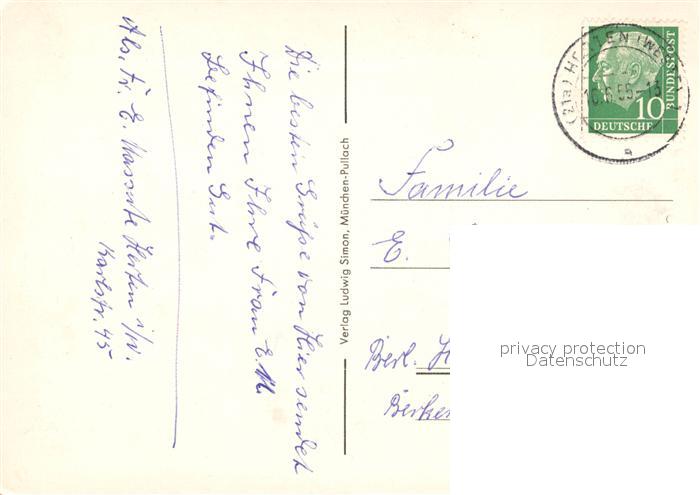 Abs. Fr. E. Massute Herten i/W.
Karlstr. 45
Die besten Grüße von Hier sendet
Ihnen Ihre Frau E. M.
Befinden Gut.
Verlag Ludwig Simon, München-Pullach
(21a) HERTEN (WESTF)
16.6.55-13
a
10
DEUTSCHE
BUNDESPOST
Familie
E.
Berl.
privacy protection
Datenschutz